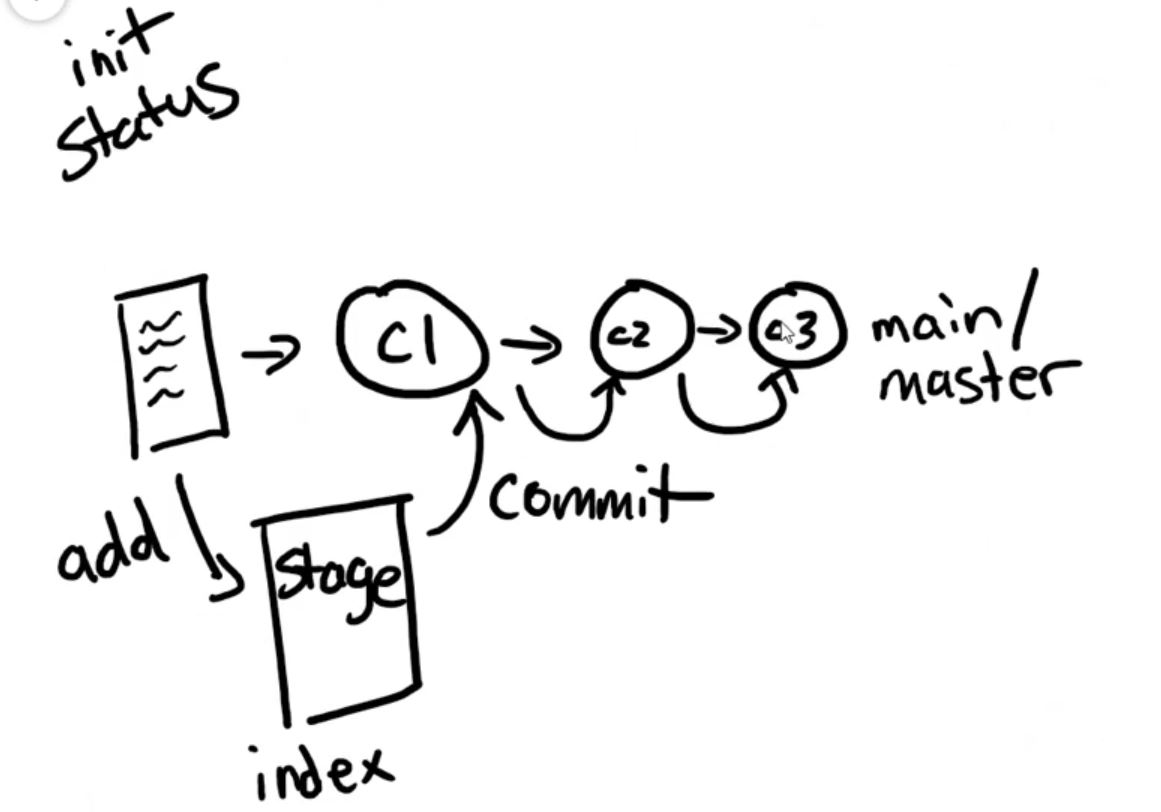 init
status
C1
c2
c3
main/
master
add
stage
commit
index